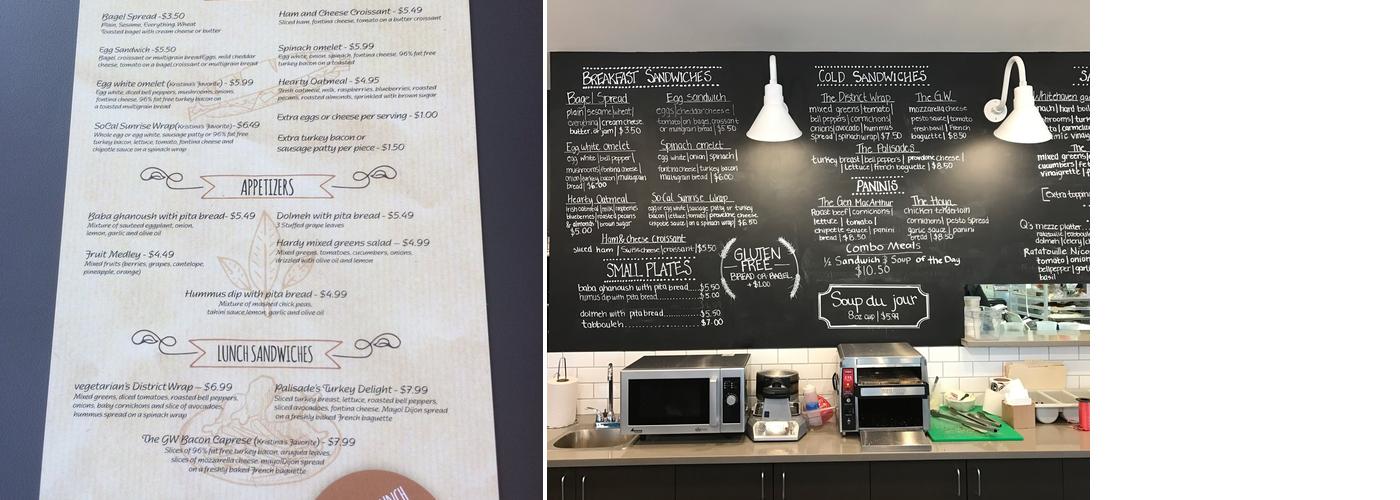 Bagel Spread -$3.50
Plain, Sesame, Everything, Wheat
Toasted bagel with cream cheese or butter
Egg Sandwich -$5.50
Bagel, croissant or multigrain breadEggs, mild cheddar
cheese, tomato on a bagel,croissant or multigrain bread
Egg white omelet (Kristina's Favorite) - $5.99
Egg white, diced bell peppers, mushrooms, onions,
fontina cheese, 96% fat free turkey bacon on
a toasted multigrain bread
SoCal Sunrise Wrap(Kristina's Favorite)-$6.49
Whole egg or egg white, sausage patty or 96% fat free
turkey bacon, lettuce, tomato, fontina cheese and
chipotle sauce on a spinach wrap
Ham and Cheese Croissant - $5.49
Sliced ham, fontina cheese, tomato on a butter croissant
Spinach omelet - $5.99
Egg white, onion, spinach, fontina cheese, 96% fat free
turkey bacon on a toasted
Hearty Oatmeal - $4.95
Irish oatmeal, milk, raspberries, blueberries, roasted
pecans, roasted almonds, sprinkled with brown sugar
Extra eggs or cheese per serving - $1.00
Extra turkey bacon or
sausage patty per piece - $1.50
APPETIZERS
Baba ghanoush with pita bread- $5.49
Mixture of sauteed eggplant, onion,
lemon, garlic and olive oil
Fruit Medley - $4.49
Mixed fruits (berries, grapes, cantelope,
pineapple, orange)
Dolmeh with pita bread - $5.49
3 Stuffed grape leaves
Hardy mixed greens salad – $4.99
Mixed greens, tomatoes, cucumbers, onions,
drizzled with olive oil and lemon
Hummus dip with pita bread - $4.99
Mixture of mashed chick peas,
tahini sauce,lemon, garlic and olive oil
LUNCH SANDWICHES
vegetarian's District Wrap – $6.99
Mixed greens, diced tomatoes, roasted bell peppers,
onions, baby cornichons and slice of avocadoes,
hummus spread on a spinach wrap
Palisade's Turkey Delight - $7.99
Sliced turkey breast, lettuce, roasted bell peppers,
sliced avocadoes, fontina cheese, Mayo| Dijon spread
on a freshly baked French baguette
The GW Bacon Caprese (Kristina's Favorite) - $7.99
Slices of 96% fat free turkey bacon, arugula leaves,
slices of mozzarella cheese, mayo|Dijon spread
on a freshly baked French baguette
BREAKFAST SANDWICHES
Bagel Spread
plain|sesame|wheat|
everything|creamcheese
butter or jam | $3.50
Egg white omelet
egg white |bell pepper|
mushrooms|fontina|
onion|turkey bacon|multigrain
bread| $6.00
Hearty Oatmeal
Irish oatmeal| milk|raspberries
blueberries|roasted pecans
& almonds| brown sugar
$5.00
Egg Sandwich
eggs|cheddar cheese|
tomato|on bagel, croissant
or multigrain bread| $5.50
Spinach omelet
egg white|onion|spinach|
fontina cheese|turkey bacon
multigrain bread| $6.00
SoCal Sunrise Wrap
egg or egg white|sausage patty or turkey
bacon|lettuce|tomato|provolone cheese
chipotle sauce|on a spinach wrap| $6.50
Ham&cheese Croissant
sliced ham | Swiss cheese|croissant|$5.50
SMALL PLATES
baba ghanoush with pita bread.....$5.50
humus dip with pita bread..........$5.00
dolmeh with pita bread............$5.50
tabbouleh....................$7.00
GLUTEN
FREE
BREAD OR BAGEL
+$1.00
COLD SANDWICHES
The District Wrap
mixed greens|tomato|
bell peppers|cornichons|
onions|avocado|humus
spread|spinach wrap|$7.50
The G.W.
mozzarella cheese
pesto sauce|tomato
fresh basil | French
baguette| $8.50
The Palisades
turkey breast|bell peppers| provolone cheese|
lettuce|french baguette | $8.50
PANINIS
The Gen MacArthur
Roast beef|cornichons|
lettuce | tomato|
chipotle sauce | panini
bread |$8.50
The Hoya
chicken tenderloin
cornichons| pesto spread
garlic sauce | panini
bread |$8.50
Combo Meals
½ Sandwich & Soup of the Day
$10.50
Soup du jour
8oz cup | $5.99
Whitehaven
mixed greens|
cucumbers| fet
vinaigrette
[extra topping
Q's mezze platter
dolmeh
Ratatouille Nicoi
tomato|onion
bellpepper|garl
basil